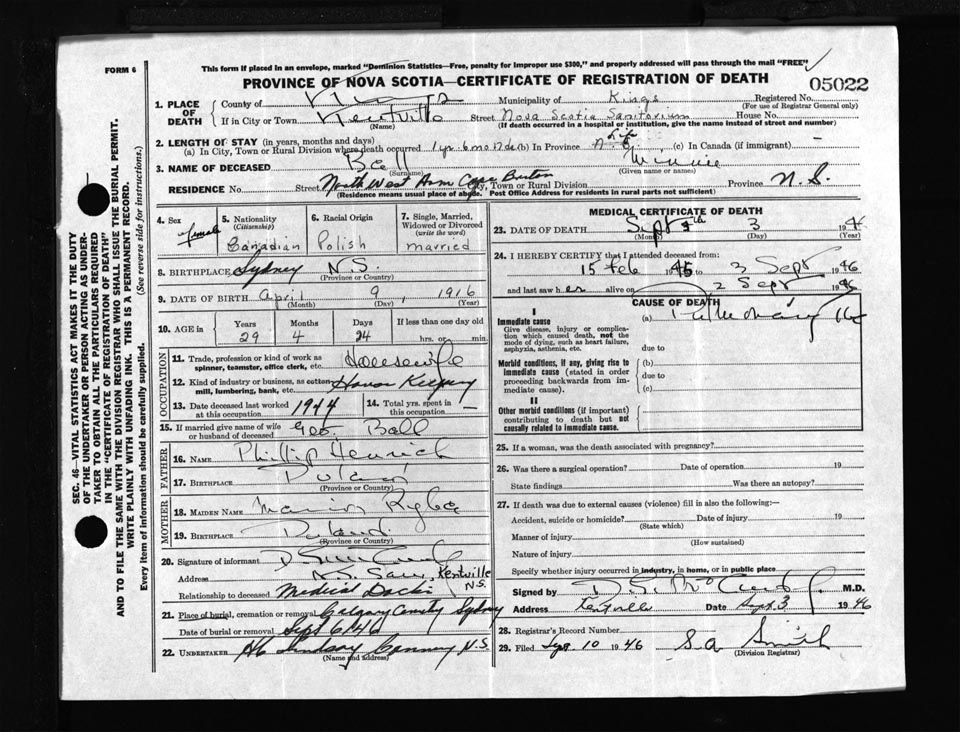 FORM 6
This form if placed in an envelope, marked "Dominion Statistics—Free, penalty for improper use $300," and properly addressed will pass through the mail "FREE"
PROVINCE OF NOVA SCOTIA—CERTIFICATE OF REGISTRATION OF DEATH
05022
1. PLACE OF DEATH
County of Kings Municipality of Kings Registered No.
(For use of Registrar General only)
If in City or Town Kentville Street Nova Scotia Sanitorium House No.
(Name) (If death occurred in a hospital or institution, give the name instead of street and number)
2. LENGTH OF STAY (in years, months and days)
(a) In City, Town or Rural Division where death occurred 1 yr. 6 mo. 17 da (b) In Province Life N.S. (c) In Canada (if immigrant) —
3. NAME OF DECEASED Ball Minnie
(Surname) (Given name or names)
RESIDENCE No. Street North West Arm Cape Breton City, Town or Rural Division Province N.S.
(Residence means usual place of abode. Post Office Address for residents in rural parts not sufficient)
4. Sex female
5. Nationality (Citizenship) Canadian
6. Racial Origin Polish
7. Single, Married, Widowed or Divorced (write the word) married
8. BIRTHPLACE Sydney N.S.
(Province or Country)
9. DATE OF BIRTH April 9, 1916
(Month) (Day) (Year)
10. AGE in Years 29 Months 4 Days 24 If less than one day old hrs. or min.
OCCUPATION
11. Trade, profession or kind of work as spinner, teamster, office clerk, etc. Housewife
12. Kind of industry or business, as cotton mill, lumbering, bank, etc. House Keeping
13. Date deceased last worked at this occupation 1944
14. Total yrs. spent in this occupation —
15. If married give name of wife or husband of deceased Geo. Ball
FATHER
16. NAME Phillip Henrich
17. BIRTHPLACE Poland
(Province or Country)
MOTHER
18. MAIDEN NAME
19. BIRTHPLACE Poland
(Province or Country)
20. Signature of informant
Address N.S. San, Kentville N.S.
Relationship to deceased Medical Doctor
21. Place of burial, cremation or removal Sydney
Date of burial or removal Sept 6/46
22. UNDERTAKER Lindsay N.S.
(Name and address)
MEDICAL CERTIFICATE OF DEATH
23. DATE OF DEATH Sept 3 1946
(Month) (Day) (Year)
24. I HEREBY CERTIFY that I attended deceased from:
15 Feb 1945 to 3 Sept 1946
and last saw her alive on 2 Sept 1946
CAUSE OF DEATH
I
Immediate cause
Give disease, injury or complication which caused death, not the mode of dying, such as heart failure, asphyxia, asthenia, etc.
(a) Pulmonary Tbc
due to
Morbid conditions, if any, giving rise to immediate cause (stated in order proceeding backwards from immediate cause).
(b)
due to
(c)
II
Other morbid conditions (if important) contributing to death but not causally related to immediate cause.
25. If a woman, was the death associated with pregnancy?
26. Was there a surgical operation? Date of operation 19
State findings Was there an autopsy?
27. If death was due to external causes (violence) fill in also the following:—
Accident, suicide or homicide? Date of injury 19
(State which)
Manner of injury
(How sustained)
Nature of injury
Specify whether injury occurred in industry, in home, or in public place
Signed by M.D.
Address Kentville Date Sept. 3 1946
28. Registrar's Record Number
29. Filed Sept 10 1946 S.A. Smith
(Division Registrar)
SEC. 46—VITAL STATISTICS ACT MAKES IT THE DUTY
OF THE UNDERTAKER OR PERSON ACTING AS UNDERTAKER
TO OBTAIN ALL THE PARTICULARS REQUIRED
IN THE "CERTIFICATE OF REGISTRATION OF DEATH"
AND TO FILE THE SAME WITH THE DIVISION REGISTRAR WHO SHALL ISSUE THE BURIAL PERMIT.
WRITE PLAINLY WITH UNFADING INK. THIS IS A PERMANENT RECORD.
Every item of information should be carefully supplied. (See reverse side for instructions.)